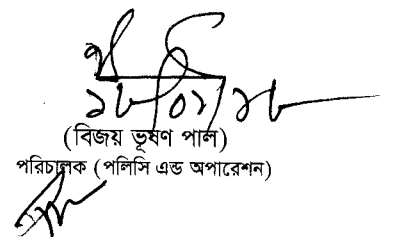 ১৮/০১/১৮
(বিজয় ভূষণ পাল)
পরিচালক (পলিসি এন্ড অপারেশন)